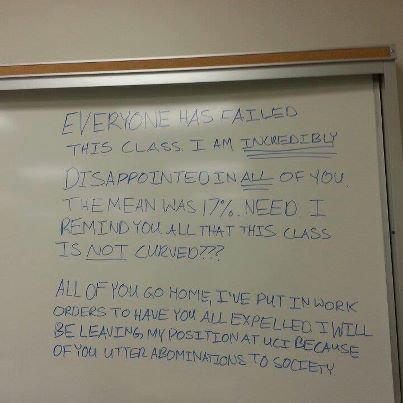 EVERYONE HAS FAILED
THIS CLASS. I AM INCREDIBLY
DISAPPOINTED IN ALL OF YOU.
THE MEAN WAS 17%. NEED I
REMIND YOU ALL THAT THIS CLASS
IS NOT CURVED???
ALL OF YOU GO HOME, I'VE PUT IN WORK
ORDERS TO HAVE YOU ALL EXPELLED. I WILL
BE LEAVING MY POSITION AT UCI BECAUSE
OF YOU UTTER ABOMINATIONS TO SOCIETY.